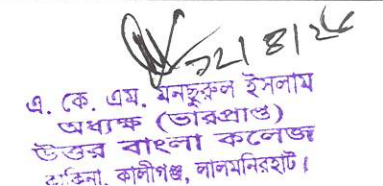 ২১/৪/২৫
এ. কে. এম. মনছুরুল ইসলাম
অধ্যক্ষ (ভারপ্রাপ্ত)
উত্তর বাংলা কলেজ
কালীগঞ্জ, লালমনিরহাট।